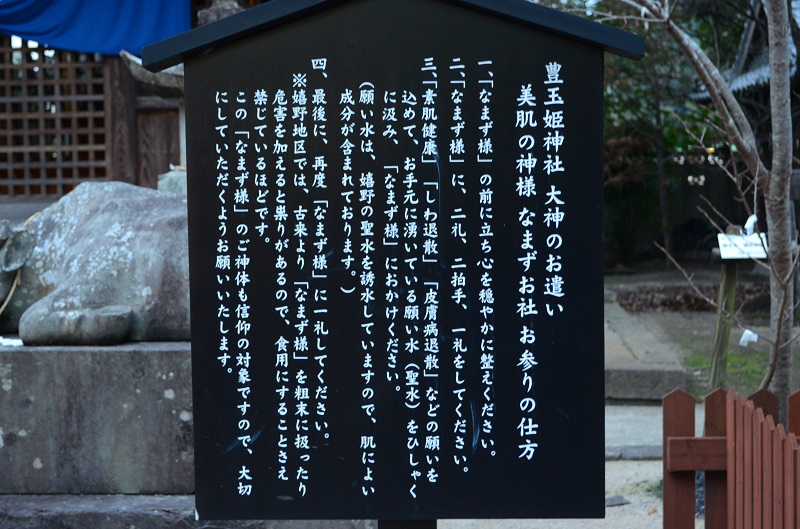 豊玉姫神社 大神のお遣い
美肌の神様 なまずお社 お参りの仕方
一、「なまず様」の前に立ち心を穏やかに整えください。
二、「なまず様」に、二礼、二拍手、一礼をしてください。
三、「素肌健康」「しわ退散」「皮膚病退散」などの願いを
込めて、お手元に湧いている願い水（聖水）をひしゃく
に汲み、「なまず様」におかけください。
（願い水は、嬉野の聖水を誘水していますので、肌によい
成分が含まれております。）
四、最後に、再度「なまず様」に一礼してください。
※嬉野地区では、古来より「なまず様」を粗末に扱ったり
危害を加えると祟りがあるので、食用にすることさえ
禁じているほどです。
この「なまず様」のご神体も信仰の対象ですので、大切
にしていただくようお願いいたします。